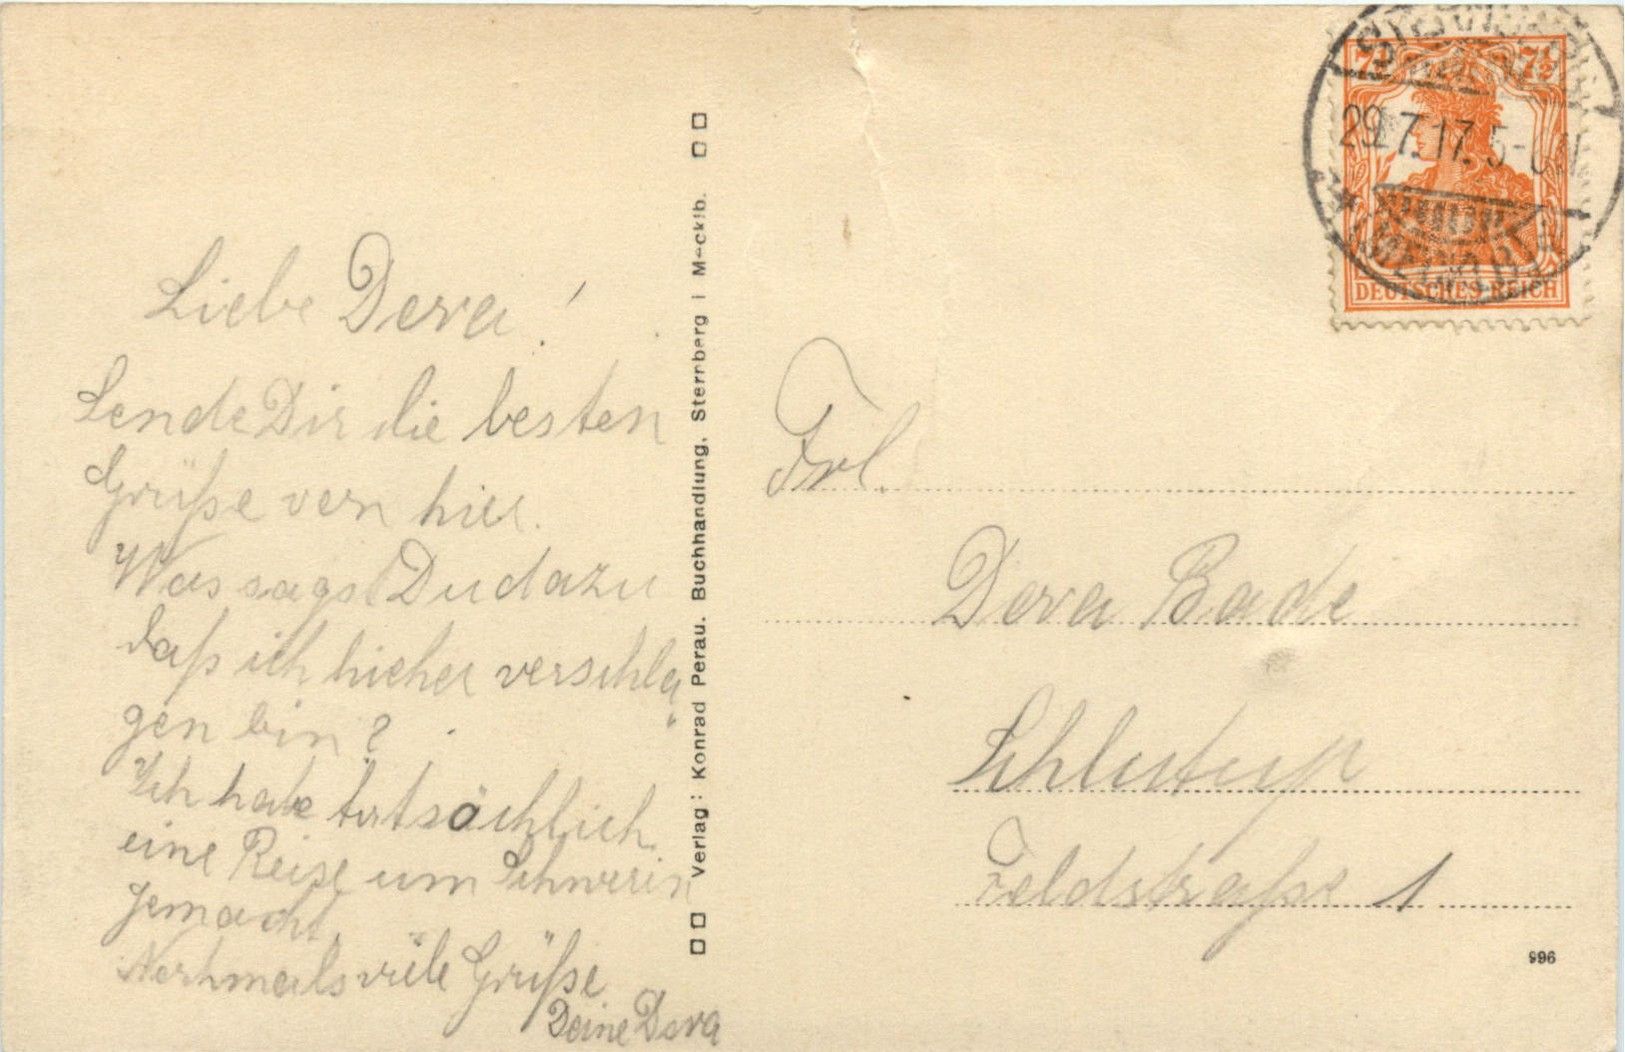 Liebe Dora!
Sende Dir die besten
Grüße von hier.
Was sagst Du dazu
daß ich hieher verschla
gen bin?
Ich habe tatsächlich
eine Reise um Schwerin
gemacht.
Nochmals viele Grüße
Deine Dora
Verlag: Konrad Perau. Buchhandlung, Sternberg i Mecklb.
7½ 7½
29.7.17. 5-6N
DEUTSCHES REICH
Frl.
Dora Bade
Schlutup
Feldstraße 1
996